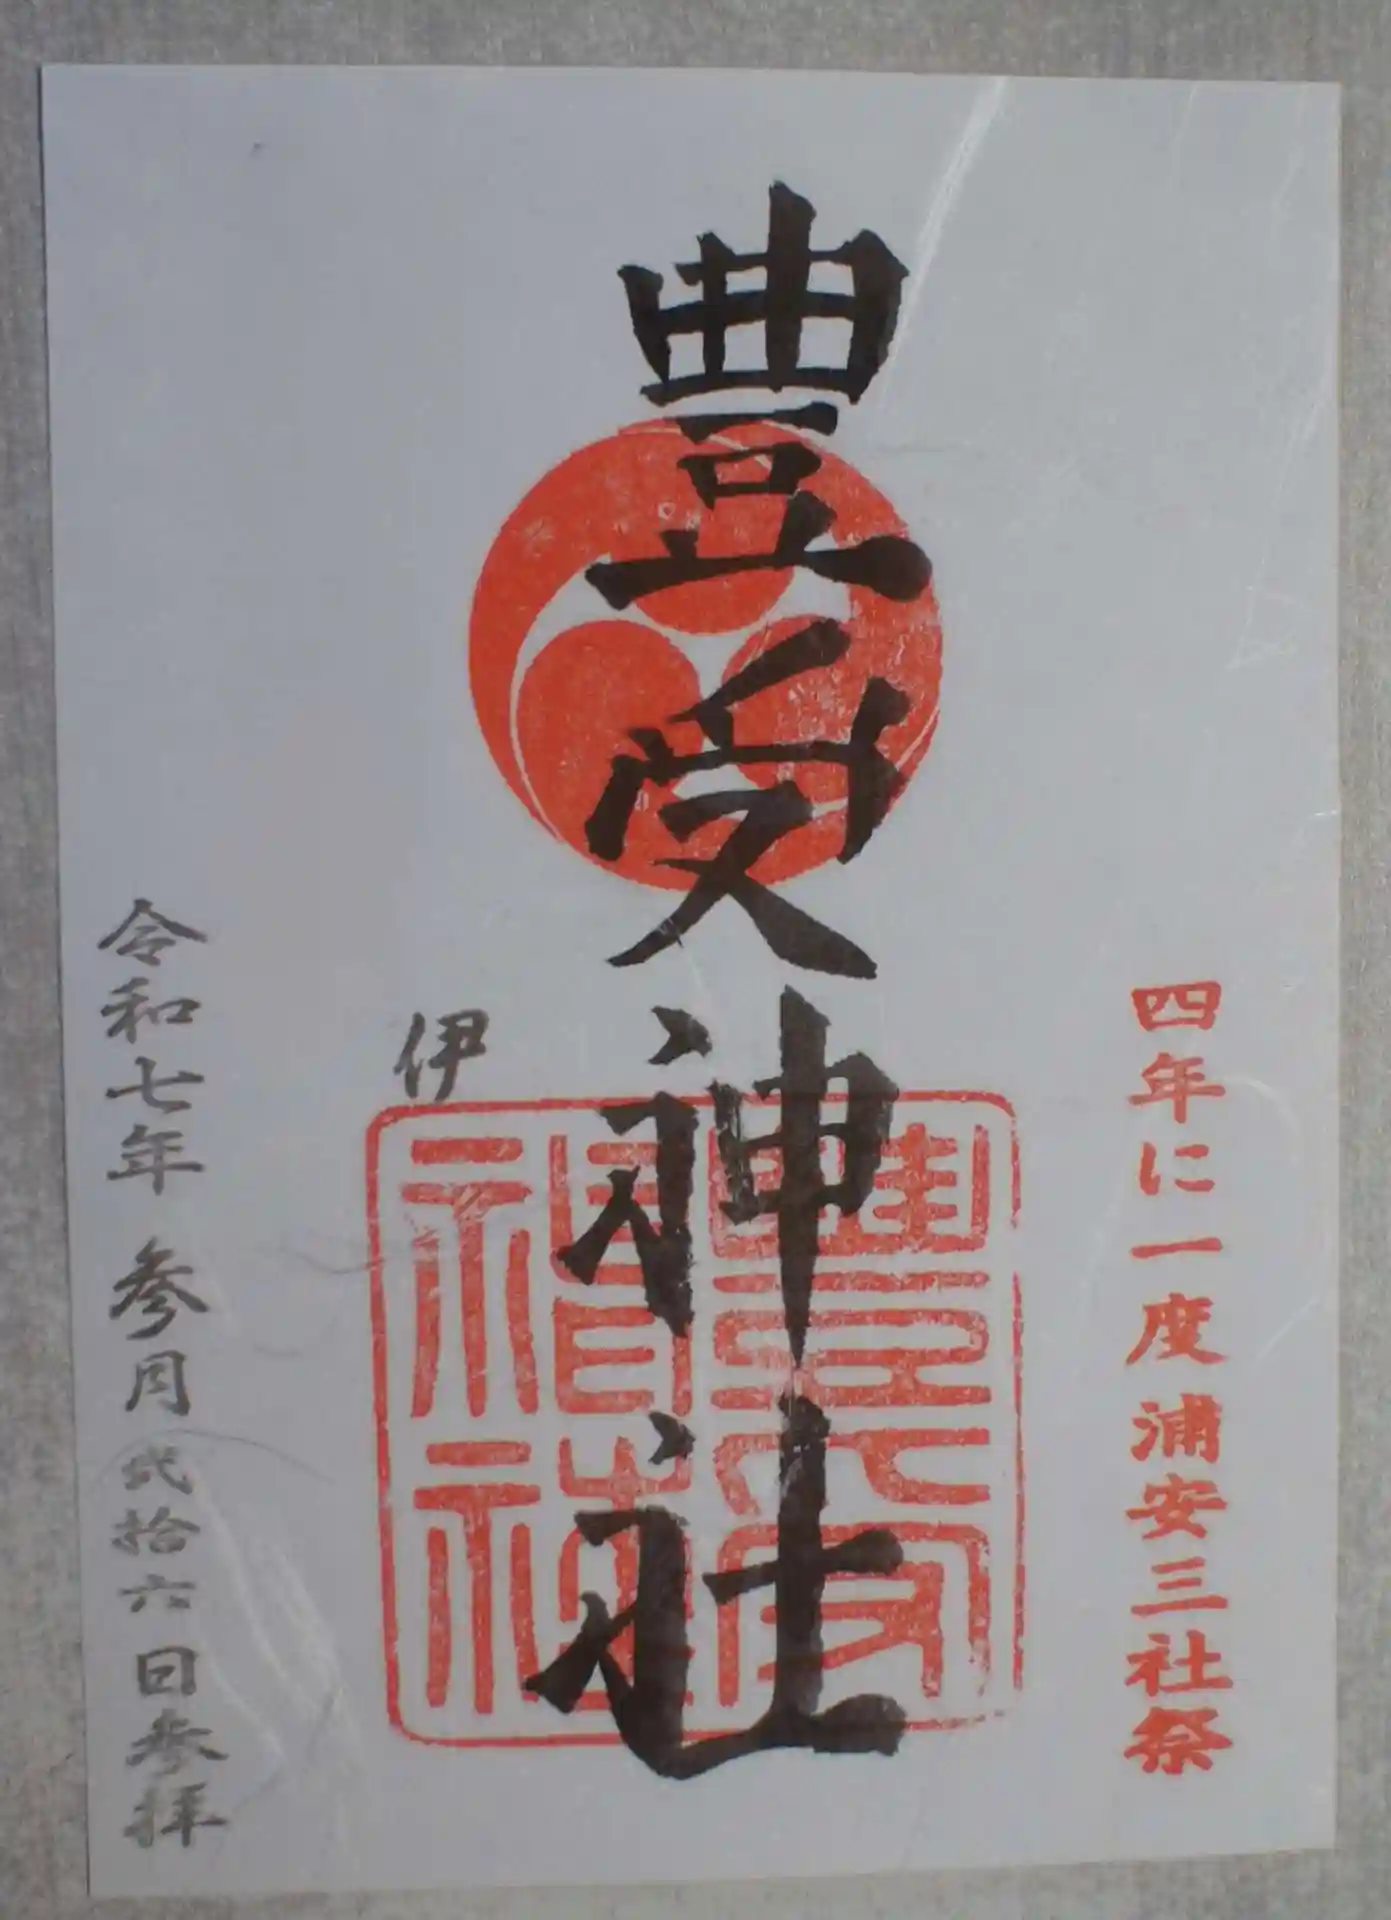 四年に一度浦安三社祭
豊受神社
伊
令和七年 参月弐拾六日参拝